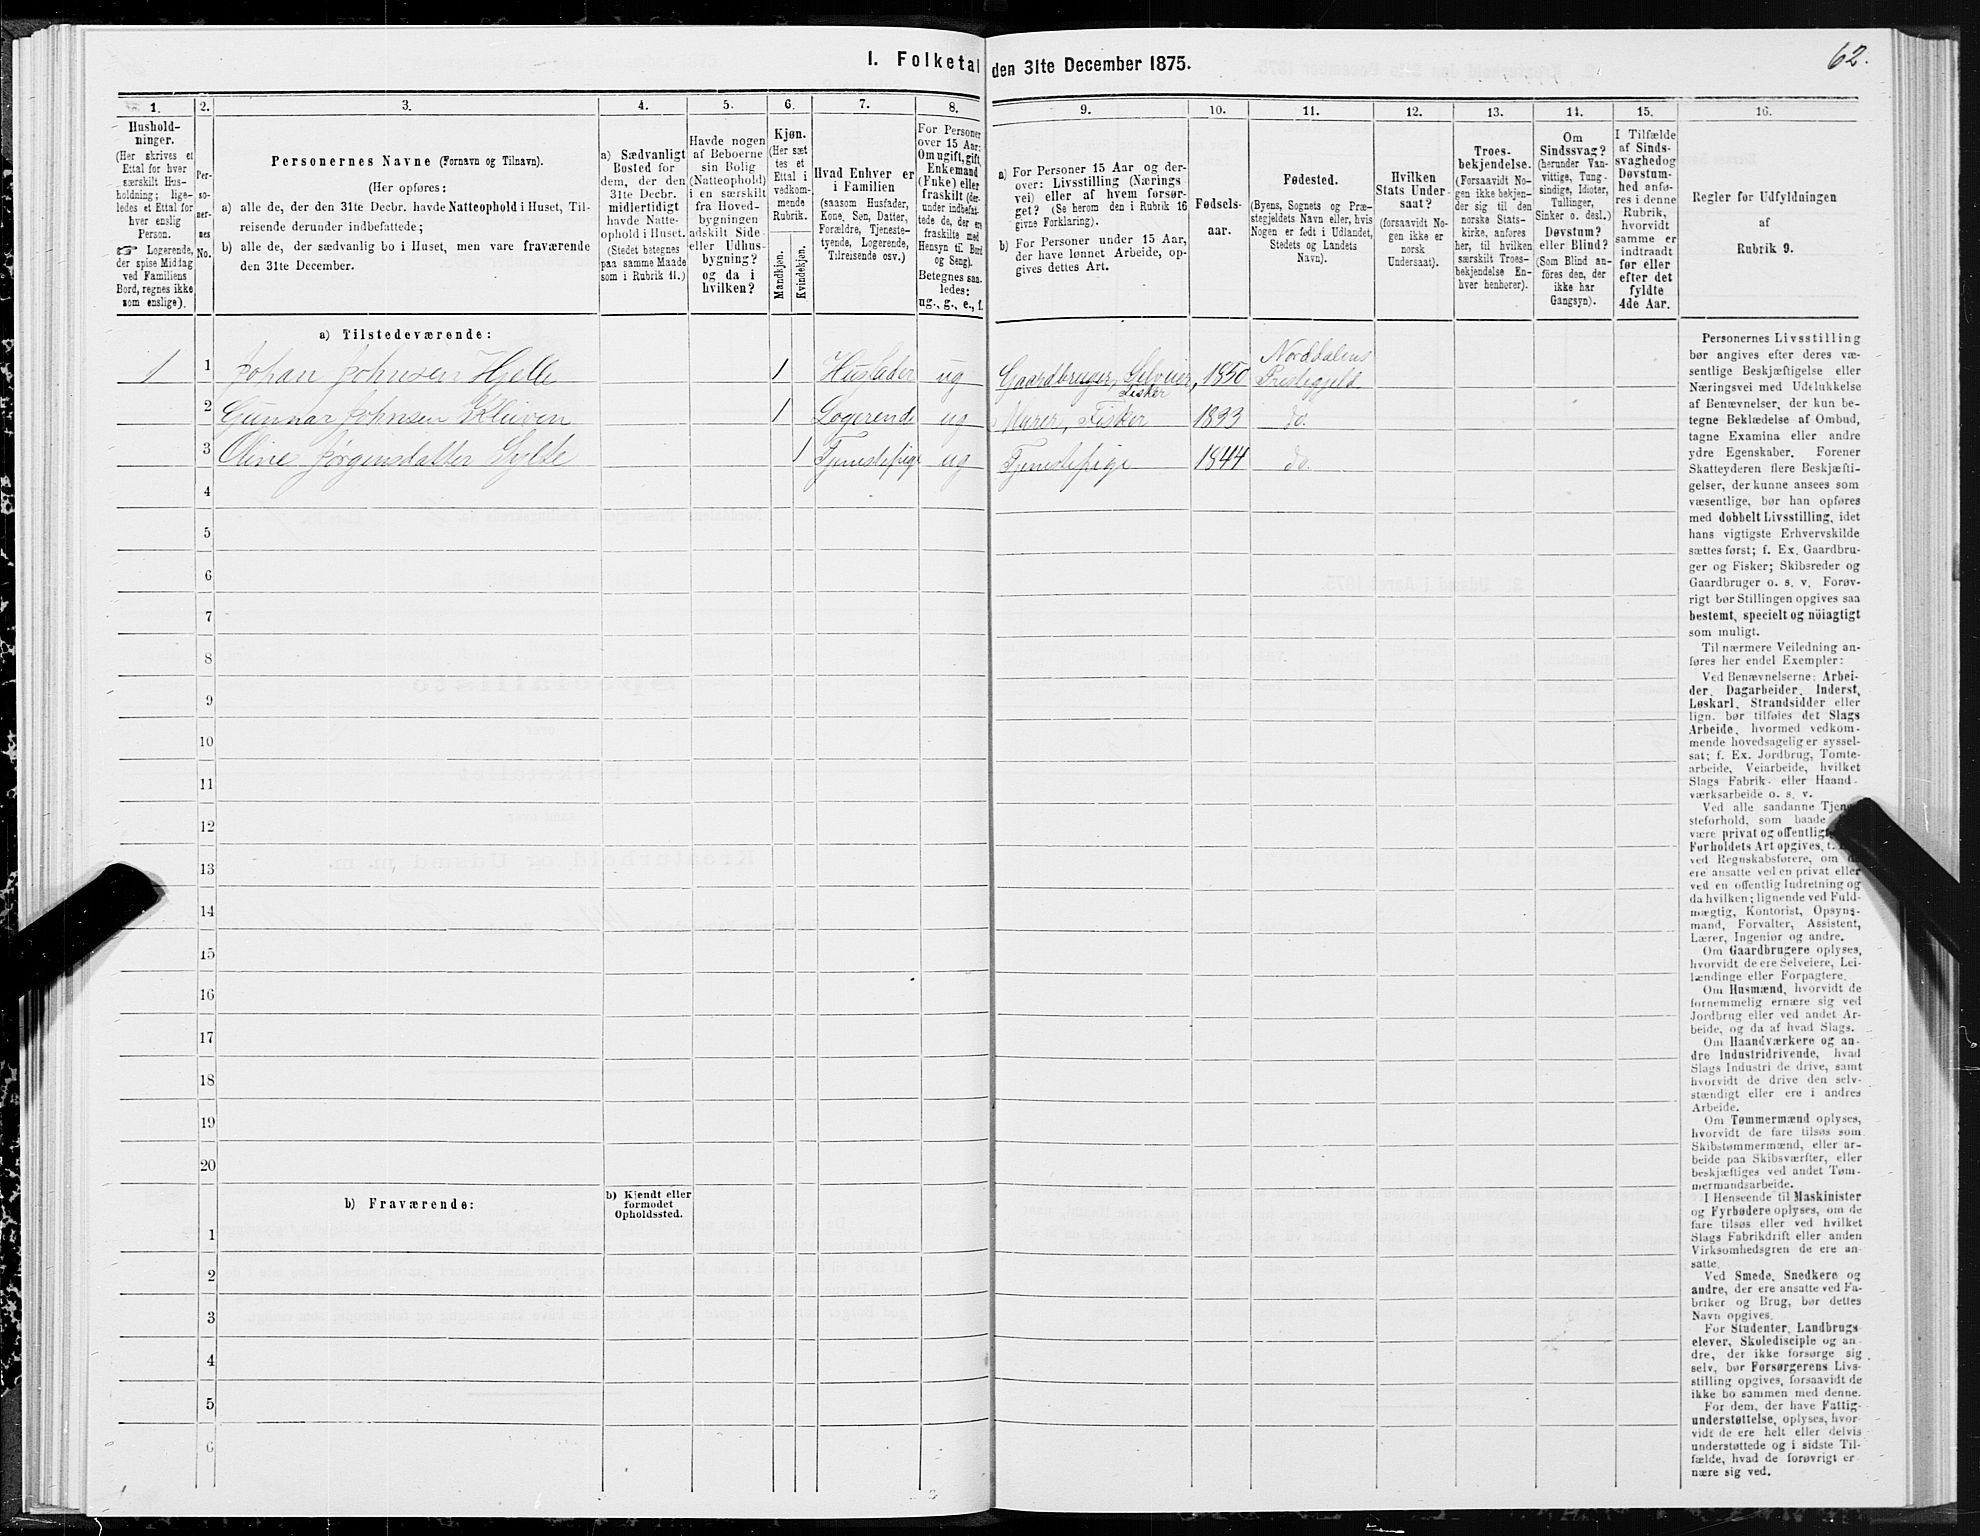 62.
I. Folketal den 31te December 1875.
1.
2.
3.
4.
5.
6.
7.
8.
9.
10.
11.
12.
13.
14.
15.
16.
Hushold-
ninger.
(Her skrives et
Ettal for hver
særskilt Hus-
holdning; lige-
ledes et Ettal for
hver enslig
Person.
☞ Logerende,
der spise Middag
ved Familiens
Bord, regnes ikke
som enslige).
Per-
so-
ner-
nes
No.
Personernes Navne (Fornavn og Tilnavn).
(Her opføres:
a) alle de, der den 31te Decbr. havde Natteophold i Huset, Til-
reisende derunder indbefattede;
b) alle de, der sædvanlig bo i Huset, men vare fraværende
den 31te December.
a) Sædvanligt
Bosted for
dem, der den
31te Decbr.
midlertidigt
havde Natte-
ophold i Huset.
(Stedet betegnes
paa samme Maade
som i Rubrik 11.)
Havde nogen
af Beboerne
sin Bolig
(Natteophold)
i en særskilt
fra Hoved-
bygningen
adskilt Side-
eller Udhus-
bygning?
og da i
hvilken?
Kjøn.
(Her sæt-
tes et
Ettal i
vedkom-
mende
Rubrik.
Mandkjøn.
Kvindekjøn.
Hvad Enhver er
i Familien
(saasom Husfader,
Kone, Søn, Datter,
Forældre, Tjeneste-
tyende, Logerende,
Tilreisende osv.)
For Personer
over 15 Aar:
Om ugift, gift,
Enkemand
(Enke) eller
fraskilt (der-
under indbefat-
tede de, der ere
fraskilte med
Hensyn til Bord
og Seng).
Betegnes saa-
ledes:
ug., g., e., f.
a) For Personer 15 Aar og der-
over: Livsstilling (Nærings
vei) eller af hvem forsør-
get? (Se herom den i Rubrik 16
givne Forklaring).
b) For Personer under 15 Aar,
der have lønnet Arbeide, op-
gives dettes Art.
Fødsels-
aar.
Fødested.
(Byens, Sognets og Præ-
stegjeldets Navn eller, hvis
Nogen er født i Udlandet,
Stedets og Landets
Navn).
Hvilken
Stats Under-
saat?
(forsaavidt No-
gen ikke er
norsk
Undersaat).
Troes-
bekjendelse.
(Forsaavidt No-
gen ikke bekjen-
der sig til den
norske Stats-
kirke, anføres
her, til hvilken
særskilt Troes-
bekjendelse En-
hver henhører).
Om
Sindssvag?
(herunder Van-
vittige, Tung-
sindige, Idioter,
Tullinger,
Sinker o. desl.)
Døvstum?
eller Blind?
(Som Blind an-
føres den, der
ikke har
Gangsyn).
I Tilfælde
af Sinds-
svaghed og
Døvstum-
hed anfø-
res i denne
Rubrik,
hvorvidt
samme er
indtraadt
før eller
efter det
fyldte
4de Aar.
Regler for Udfyldningen
af
Rubrik 9.
a) Tilstedeværende:
1 1 Johan Johnsen Hjelle 1 Husfader ug Gaardbruger, Selveier, Fisker 1850 Norddalens Prestegjeld
2 Gunnar Johnsen Kleiven 1 Logerende ug Murer, Fisker 1833 do.
3 Oline Jørgensdatter Sylte 1 Tjenestepige ug Tjenestepige 1844 do.
4
5
6
7
8
9
10
11
12
13
14
15
16
17
18
19
20
b) Fraværende:
b) Kjendt eller
formodet
Opholdssted.
1
2
3
4
5
6
Personernes Livsstilling
bør angives efter deres væ-
sentlige Beskjæftigelse eller
Næringsvei med Udelukkelse
af Benævnelser, der kun be-
tegne Beklædelse af Ombud,
tagne Examina eller andre
ydre Egenskaber. Forener
Skatteyderen flere Beskjæfti-
gelser, der kunne ansees som
væsentlige, bør han opføres
med dobbelt Livsstilling, idet
hans vigtigste Erhvervskilde
sættes først; f. Ex. Gaardbru-
ger og Fisker; Skibsreder og
Gaardbruger o. s. v. Forøv-
rigt bør Stillingen opgives saa
bestemt, specielt og nöiagtigt
som muligt.
Til nærmere Veiledning an-
føres her endel Exempler:
Ved Benævnelserne: Arbei-
der, Dagarbeider, Inderst,
Løskarl, Strandsidder eller
lign. bør tilføies det Slags
Arbeide, hvormed vedkom-
mende hovedsagelig er syssel-
sat; f. Ex. Jordbrug, Tomte-
arbeide, Veiarbeide, hvilket
Slags Fabrik- eller Haand-
værksarbeide o. s. v.
Ved alle saadanne Tjene-
steforhold, som baade
være privat og offentlig
Forholdets Art opgives,
ved Regnskabsførere, om de
ere ansatte ved en privat eller
ved en offentlig Indretning og
da hvilken; lignende ved Fuld-
mægtig, Kontorist, Opsyns-
mand, Forvalter, Assistent,
Lærer, Ingeniør og andre.
Om Gaardbrugere oplyses,
hvorvidt de ere Selveiere, Lei-
lændinge eller Forpagtere.
Om Husmænd, hvorvidt de
fornemmelig ernære sig ved
Jordbrug eller ved andet Ar-
beide, og da af hvad Slags.
Om Haandværkere og an-
dre Industridrivende, hvad
Slags Industri de drive, samt
hvorvidt de drive den selv-
stændigt eller ere i andres
Arbeide.
Om Tømmermænd oplyses,
hvorvidt de fare tilsøs som
Skibstømmermænd, eller ar-
beide paa Skibsværfter, eller
beskjæftiges ved andet Tøm-
mermandsarbeide.
I Henseende til Maskinister
og Fyrbødere oplyses, om de
fare tilsøs eller ved hvilket
Slags Fabrikdrift eller anden
Virksomhedsgren de ere an-
satte.
Ved Smede, Snedkere og
andre, der ere ansatte ved Fa-
briker og Brug, bør dettes
Navn opgives.
For Studenter, Landbrugs
elever, Skoledisciple og an
dre, der ikke forsørge sig
selv, bør Forsørgerens Livs-
stilling opgives, forsaavidt de
ikke bo sammen med denne.
For dem, der have Fattig-
understøttelse, oplyses, hvor-
vidt de ere helt eller delvis
understøttede og i sidste Til-
fælde, hvad de forøvrigt er
nære sig ved.